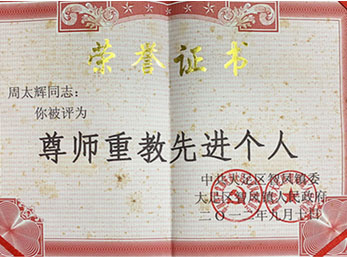 荣誉证书
周太辉同志：
你被评为
尊师重教先进个人
中共大足区智凤镇委
大足区智凤镇人民政府
二〇一二年九月十日